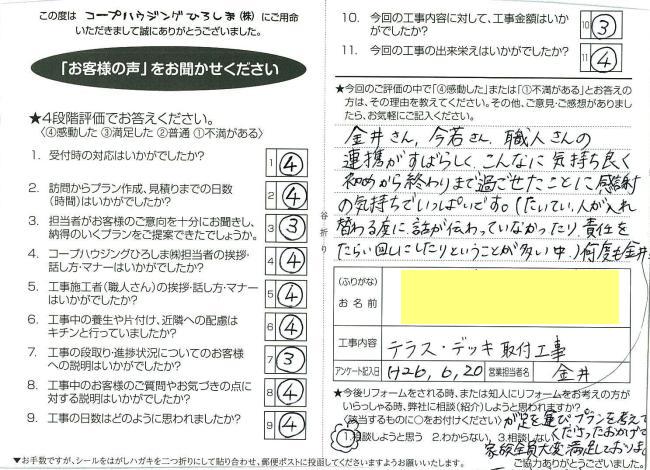 この度は コープハウジングひろしま(株) にご用命
いただきまして誠にありがとうございました。
「お客様の声」をお聞かせください
★4段階評価でお答えください。
〈④感動した ③満足した ②普通 ①不満がある〉
1. 受付時の対応はいかがでしたか?
1 4
2. 訪問からプラン作成、見積りまでの日数
(時間)はいかがでしたか?
2 4
3. 担当者がお客様のご意向を十分にお聞きし、
納得のいくプランをご提案できたでしょうか。
3 3
4. コープハウジングひろしま㈱担当者の挨拶・
話し方・マナーはいかがでしたか?
4 4
5. 工事施工者(職人さん)の挨拶・話し方・マナー
はいかがでしたか?
5 4
6. 工事中の養生や片付け、近隣への配慮は
キチンと行っていましたか?
6 4
7. 工事の段取り・進捗状況についてのお客様
への説明はいかがでしたか?
7 3
8. 工事中のお客様のご質問やお気づきの点に
対する説明はいかがでしたか?
8 4
9. 工事の日数はどのように思われましたか?
9 4
▼お手数ですが、シールをはがしハガキを二つ折りにして貼り合わせ、郵便ポストに投函してくださいますようお願いいたします。
谷折り
10. 今回の工事内容に対して、工事金額はいか
がでしたか?
10 3
11. 今回の工事の出来栄えはいかがでしたか?
11 4
★今回のご評価の中で「④感動した」または「①不満がある」とお答えの
方は、その理由を教えてください。その他、ご意見・ご感想がありました
ら、お気軽にご記入ください。
金井さん、今若さん、職人さんの
連携がすばらしく、こんなに気持ち良く
初めから終わりまで過ごせたことに感謝
の気持ちでいっぱいです。(たいてい、人が入れ
替わる度に、話が伝わっていなかったり、責任を
たらい回しにしたりということが多い中、)何度も金井
(ふりがな)
お名前
工事内容 テラス・デッキ取付工事
アンケート記入日 H26, 6, 20 営業担当者名 金井
★今後リフォームをされる時、または知人にリフォームをお考えの方が
いらっしゃる時、弊社に相談(紹介)しようと思われますか?
〈該当するものに○をお付けください〉
1.相談しようと思う 2.わからない 3.相談しない
が足を運びプランを考えて
くださったおかげで
家族全員大変満足しております。
ご協力ありがとうございました。